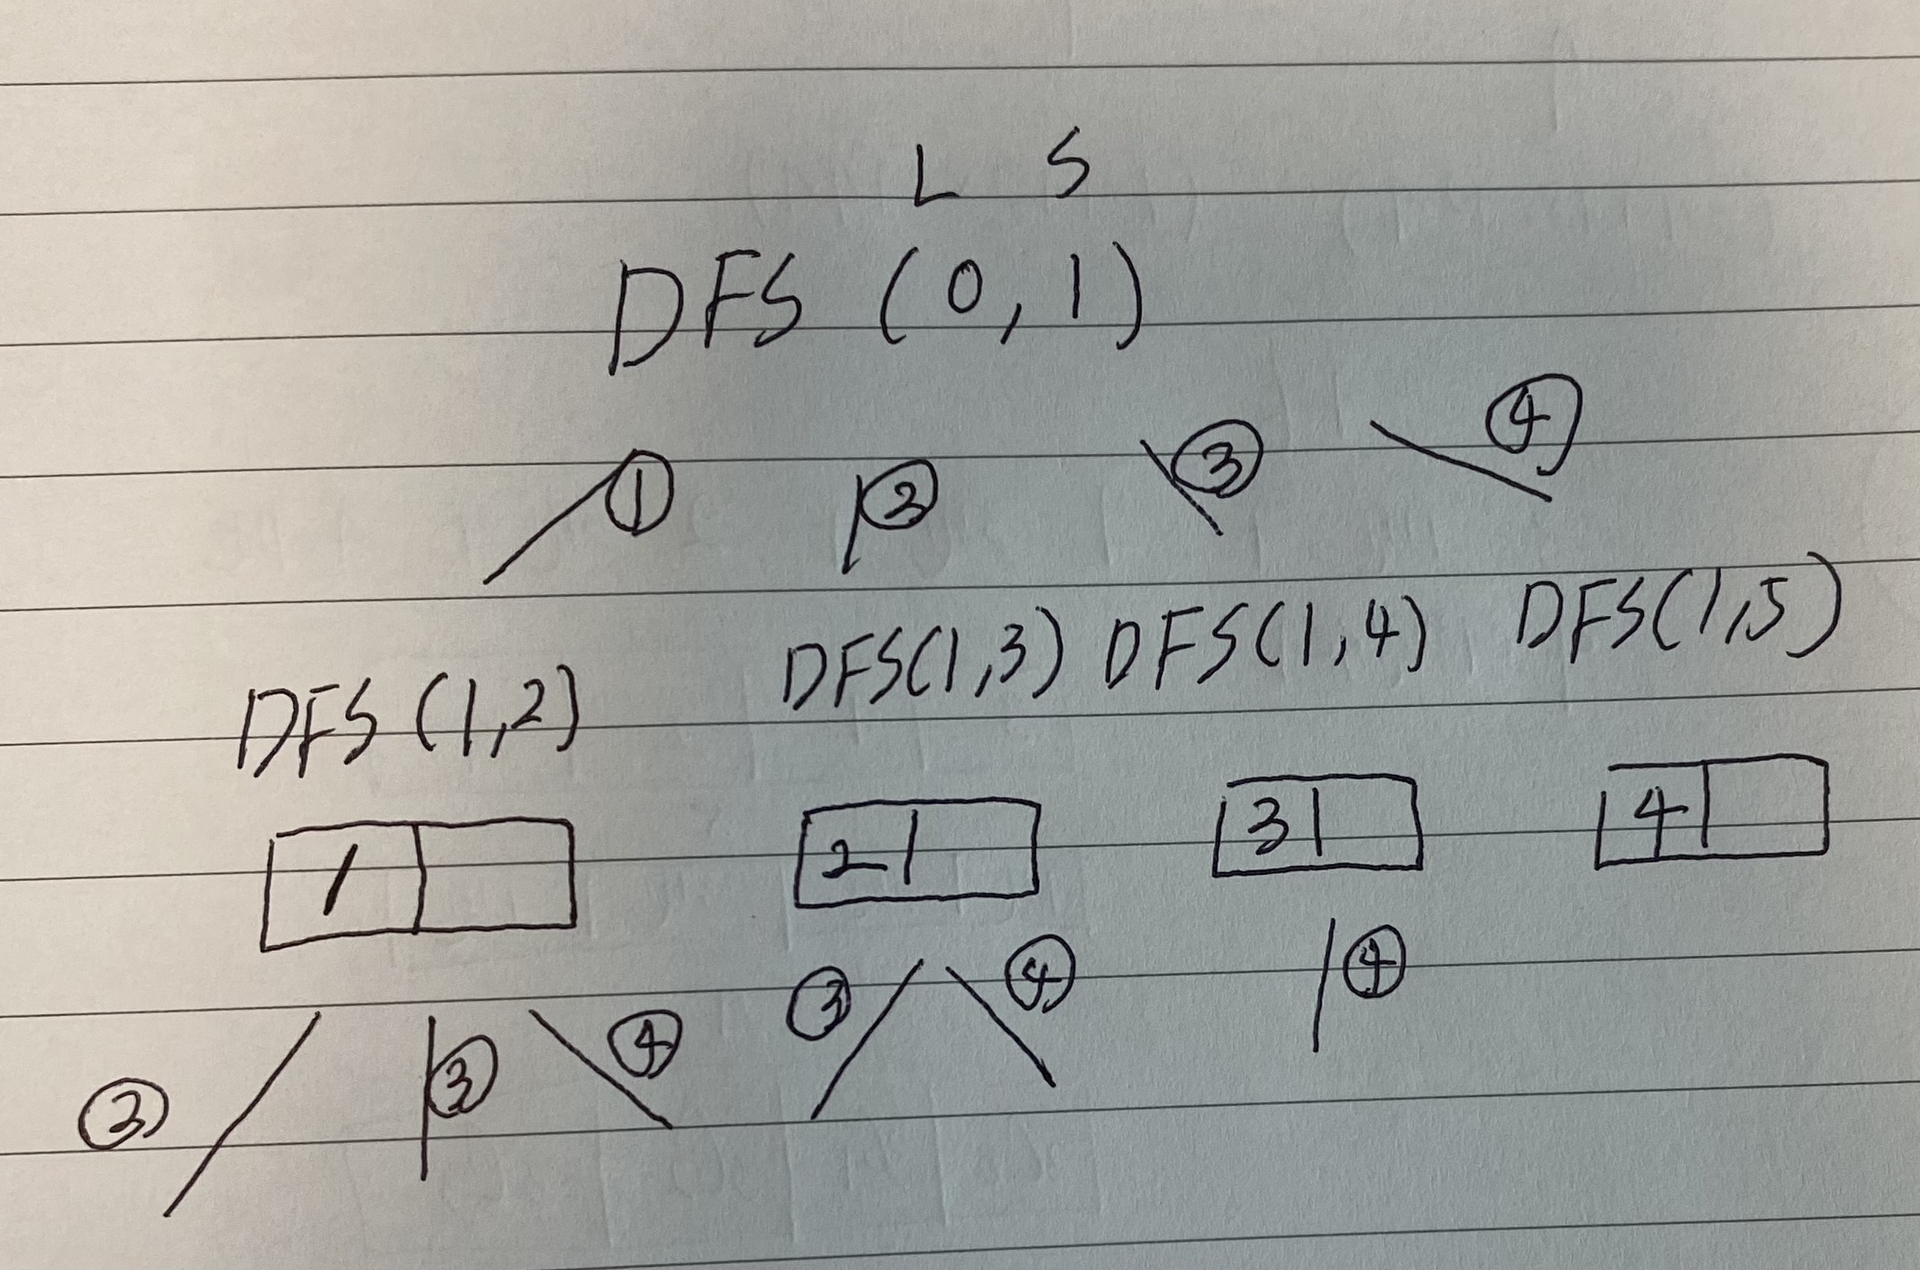 L S
DFS (0,1)
① ② ③ ④
DFS (1,2) DFS(1,3) DFS(1,4) DFS(1,5)
1 2 3 4
② ③ ④ ③ ④ ④